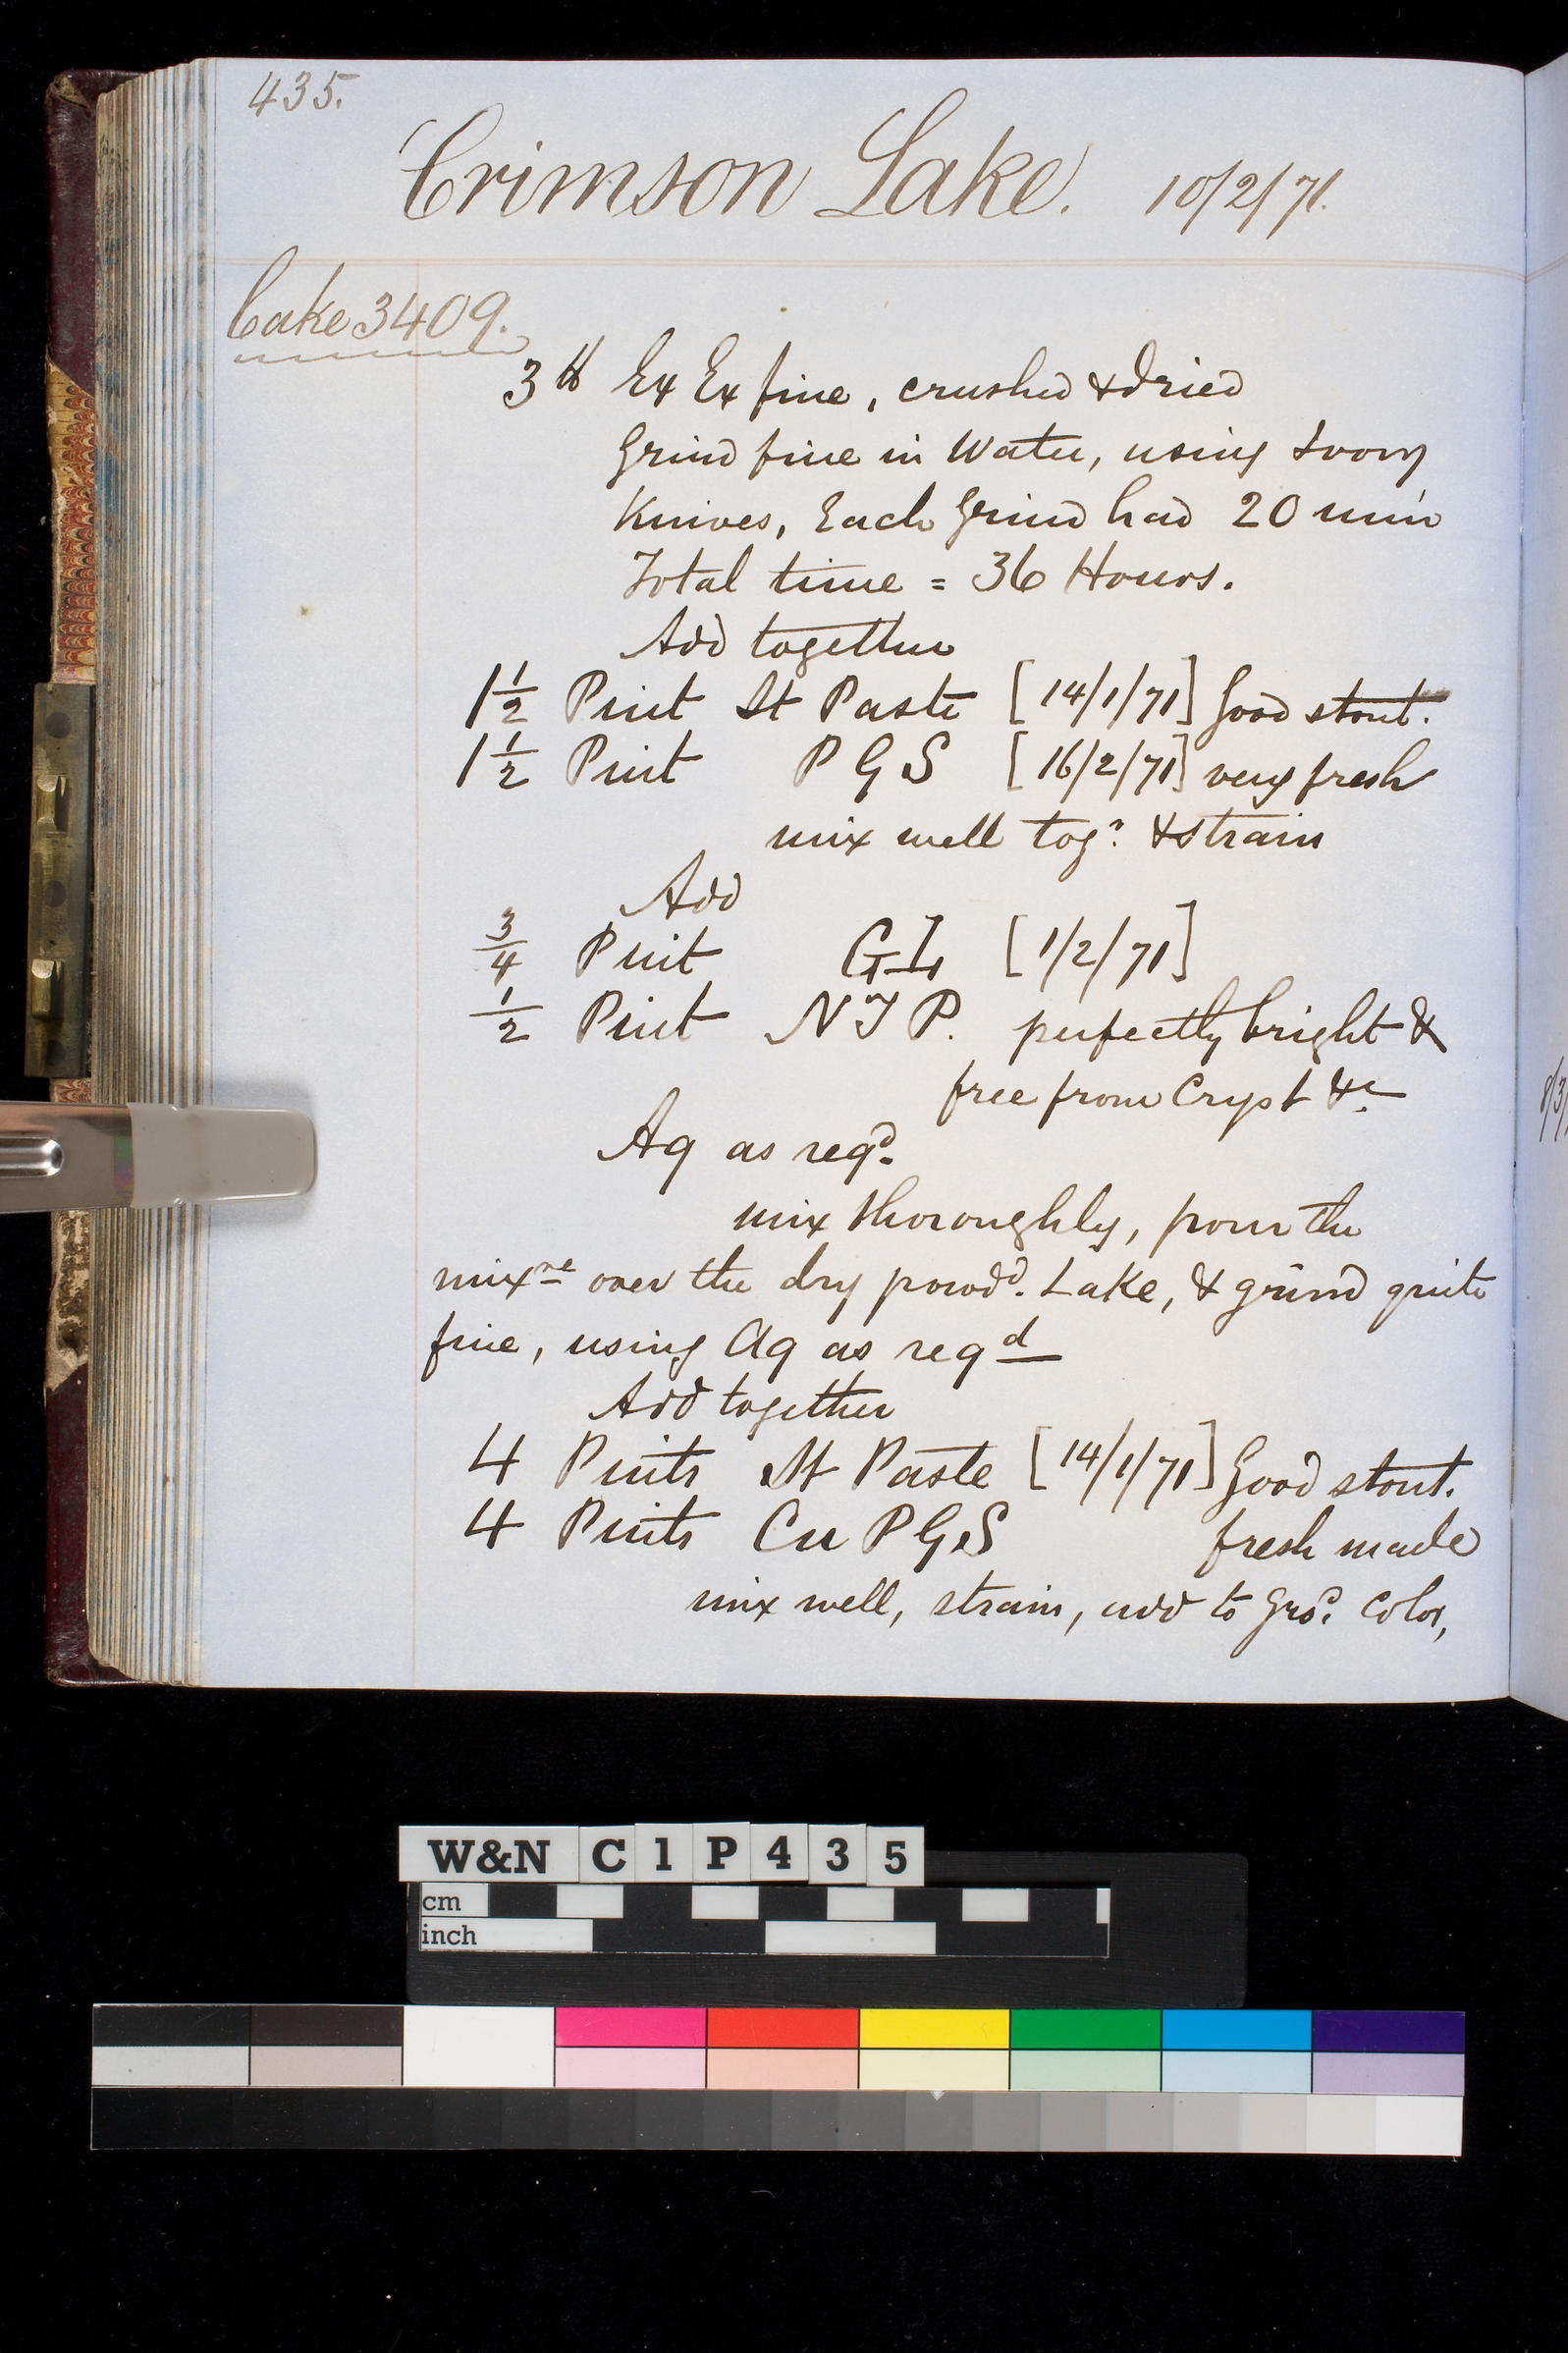 435.
Crimson Lake. 10/2/71.
Cake 3409.
3 ℔ Ex Ex fine, crushed & dried
Grind fine in Water, using Ivory
Knives, Each Grind had 20 min
Total time = 36 Hours.
Add together
1 1/2 Pint St Paste [14/1/71] Good stout.
1 1/2 Pint P G S [16/2/71] very fresh
mix well togr. & strain
Add
3/4 Pint GL [1/2/71]
1/2 Pint N T P. perfectly bright &
free from Cryst &c
Aq as reqd.
mix thoroughly, pour the
mixre over the dry powdd. Lake, & grind quite
fine, using Aq as reqd
Add together
4 Pints St Paste [14/1/71] Good stout.
4 Pints Cu P G S fresh made
mix well, strain, add to Grod. Color,
W&N C1P435
cm
inch